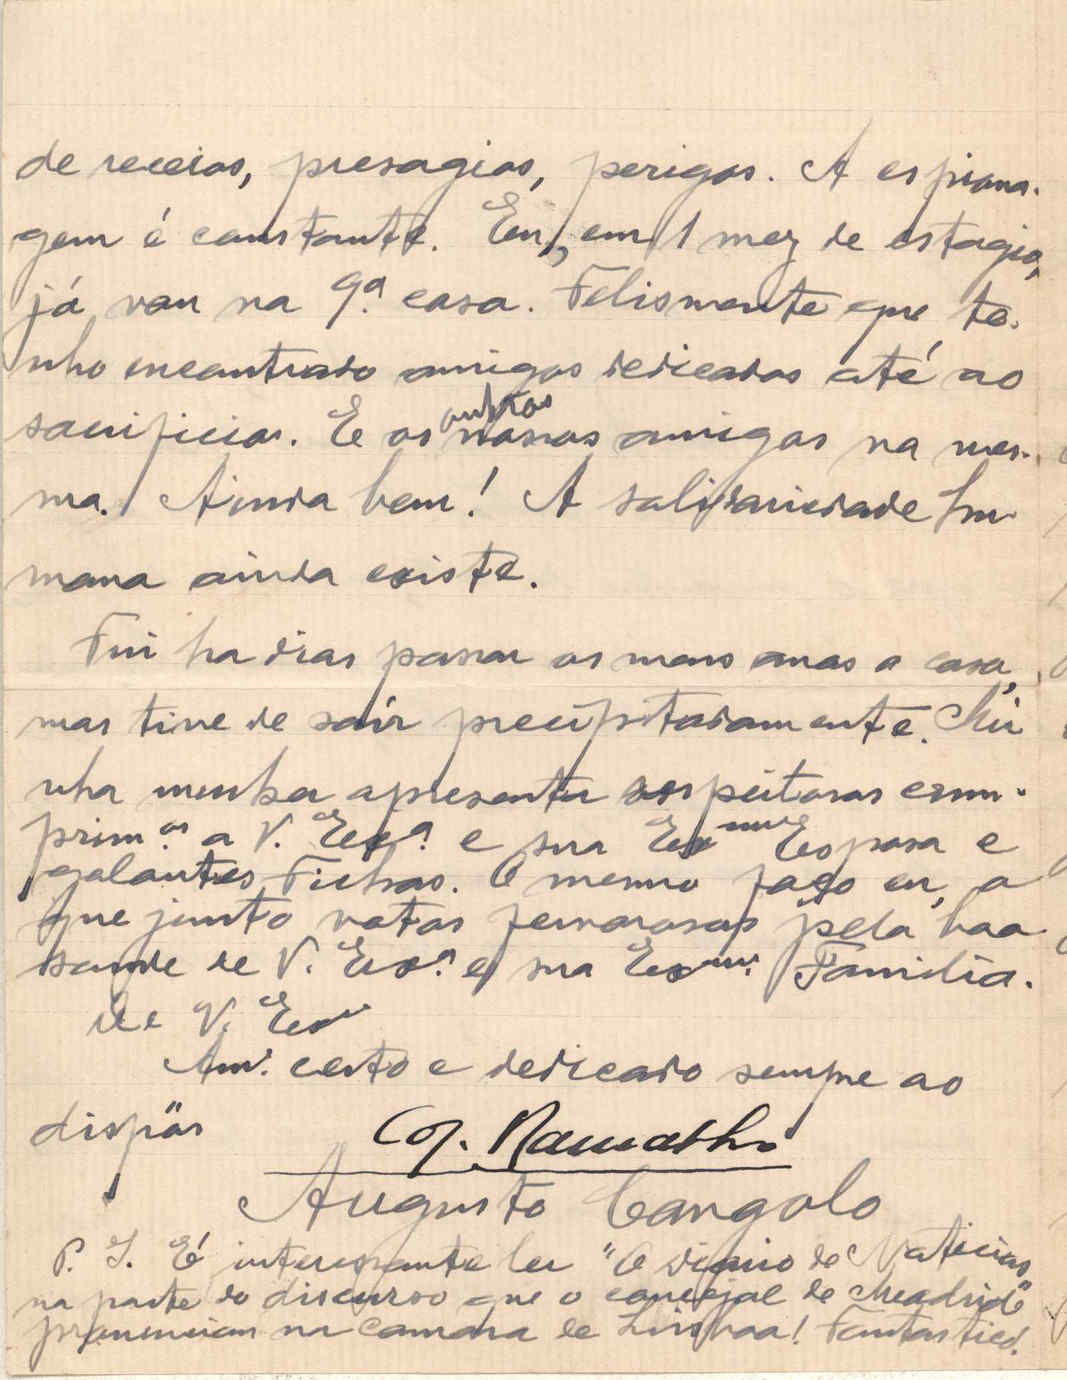 de receios, presagios, perigos. A espiona-
gem é constante. Eu, em 1 mez de estagio,
já vou na 9ª casa. Felismente que te-
nho encontrado amigos dedicados até ao
sacrificio. E os outros nossos amigos na mes-
ma. Ainda bem! A solidariedade hu-
mana ainda existe.
Fui ha dias passar os meus anos a casa,
mas tive de saír precipitadamente. Mi-
nha mulher apresenta respeitosos cum-
prim.os a V. Exª. e sua Exma Esposa e
galantes Filhas. O mesmo faço eu, a
que junto votos fervorosos pela boa
saude de V. Exª. e sua Exma. Familia.
De V. Exa
Amº. certo e dedicado sempre ao
dispôr
Cap.
Augusto
P. S. É interessante ler "O Diario de Noticias"
na parte do discurso que o concejal de Madrid
pronunciou na Camara de Lisboa! Fantastico.